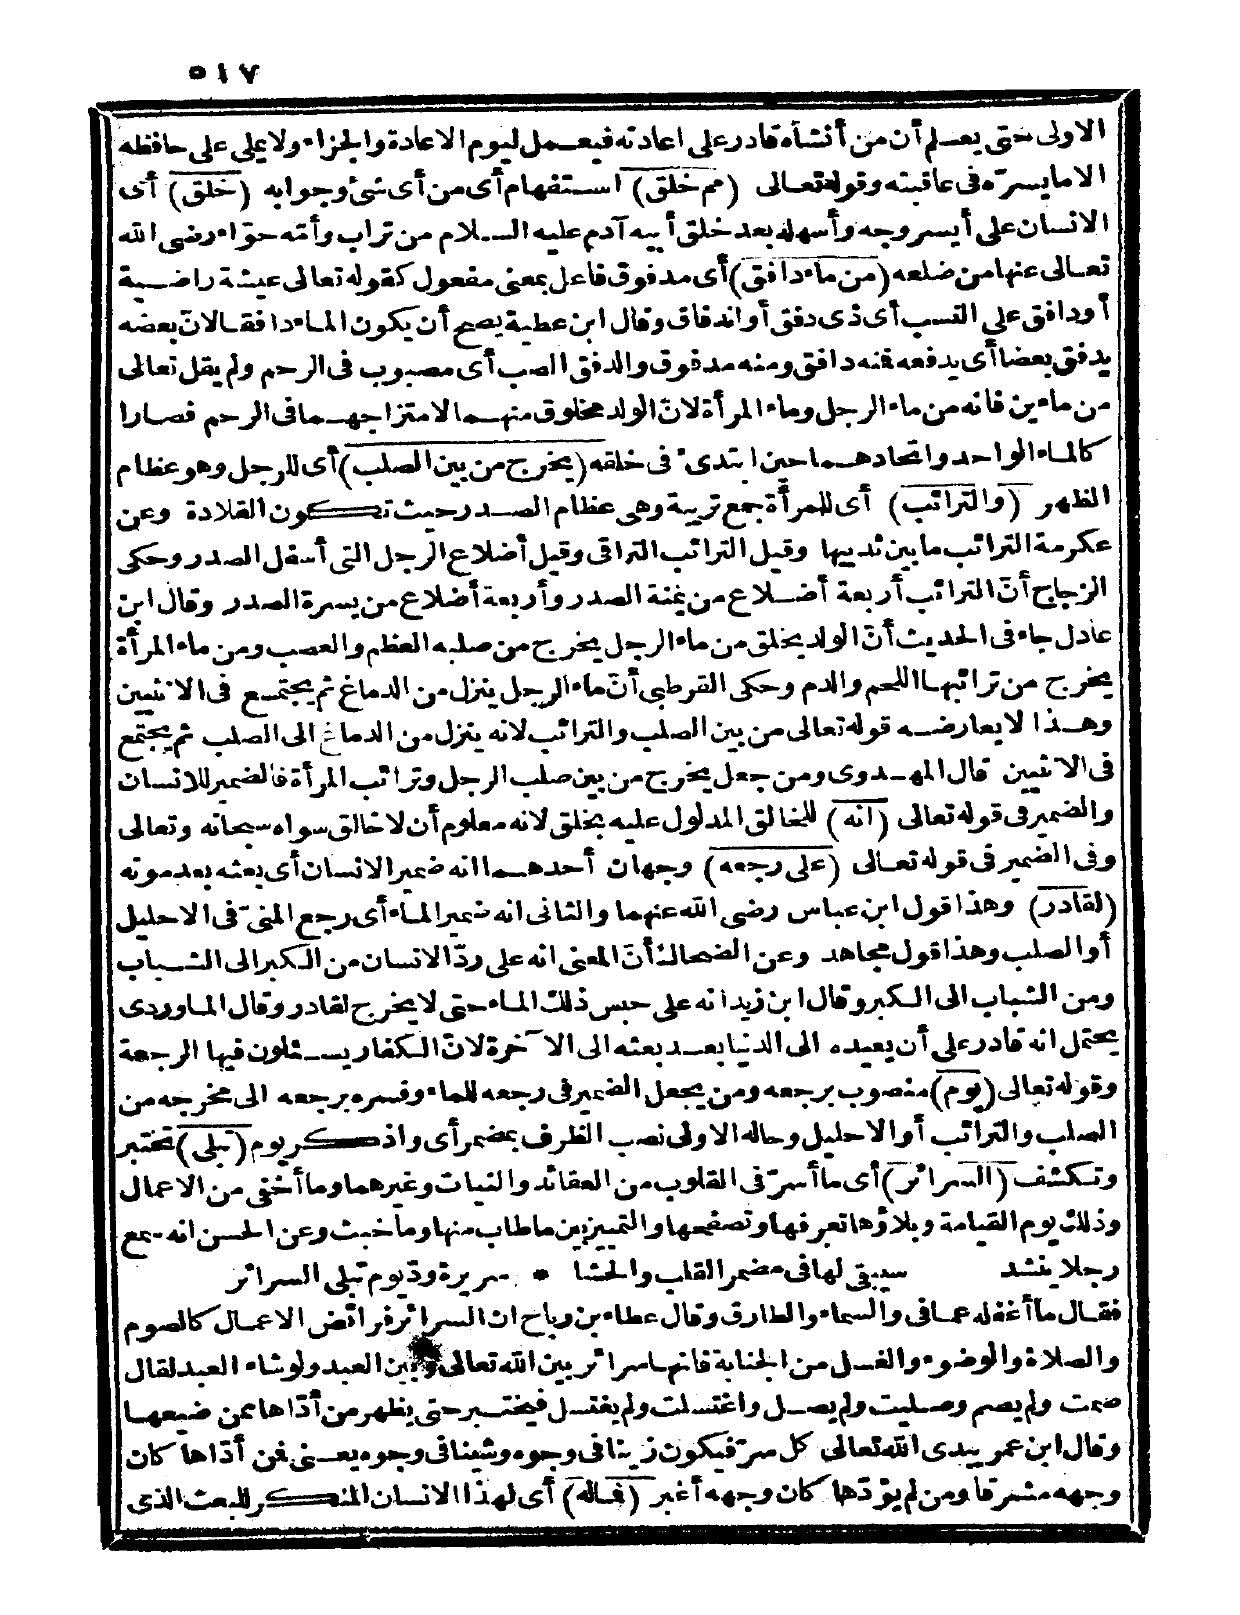 ٥١٧
الاولى حتى يعلم أن من أنشأه قادر على اعادته فيعمل ليوم الاعادة والجزاء ولا يملى على حافظه
الا ما يسره فى عاقبته وقوله تعالى (مم خلق) استفهام أى من أى شئ وجوابه (خلق) أى
الانسان على أيسر وجه وأسهله بعد خلق أبيه آدم عليه السلام من تراب وأمّه حوّاء رضى الله
تعالى عنها من ضلعه (من ماء دافق) أى مدفوق فاعل بمعنى مفعول كقوله تعالى عيشة راضية
أو دافق على النسب أى ذى دفق أو اندفاق وقال ابن عطية يصح أن يكون الماء دافقا لانّ بعضه
يدفق بعضا أى يدفعه فمنه دافق ومنه مدفوق والدفق الصب أى مصبوب فى الرحم ولم يقل تعالى
من ماءين فانه من ماء الرجل وماء المرأة لانّ الولد مخلوق منهما لامتزاجهما فى الرحم فصارا
كالماء الواحد واتحادهما حين ابتدئ فى خلقه (يخرج من بين الصلب) أى للرجل وهو عظام
الظهر (والترائب) أى للمرأة جمع تريبة وهى عظام الصدر حيث تكون القلادة وعن
عكرمة الترائب ما بين ثدييها وقيل الترائب التراقى وقيل أضلاع الرجل التى أسفل الصدر وحكى
الزجاج أنّ الترائب أربعة أضلاع من يمنة الصدر وأربعة أضلاع من يسرة الصدر وقال ابن
عادل جاء فى الحديث أنّ الولد يخلق من ماء الرجل يخرج من صلبه العظم والعصب ومن ماء المرأة
يخرج من ترائبها اللحم والدم وحكى القرطبى أنّ ماء الرجل ينزل من الدماغ ثم يجتمع فى الانثيين
وهذا لا يعارضه قوله تعالى من بين الصلب والترائب لانه ينزل من الدماغ الى الصلب ثم يجتمع
فى الانثيين قال المهدوى ومن جعل يخرج من بين صلب الرجل وترائب المرأة فالضمير للانسان
والضمير فى قوله تعالى (انه) للخالق المدلول عليه بخلق لانه معلوم أن لا خالق سواه سبحانه وتعالى
وفى الضمير فى قوله تعالى (على رجعه) وجهان أحدهما انه ضمير الانسان أى بعثه بعد موته
(لقادر) وهذا قول ابن عباس رضى الله عنهما والثانى انه ضمير الماء أى رجع المنىّ فى الاحليل
أو الصلب وهذا قول مجاهد وعن الضحاك أنّ المعنى انه على ردّ الانسان من الكبر الى الشباب
ومن الشباب الى الكبر وقال ابن زيد انه على حبس ذلك الماء حتى لا يخرج لقادر وقال الماوردى
يحتمل انه قادر على أن يعيده الى الدنيا بعد بعثه الى الآخرة لانّ الكفار يسئلون فيها الرجعة
وقوله تعالى (يوم) منصوب برجعه ومن يجعل الضمير فى رجعه للماء وفسره برجعه الى مخرجه من
الصلب والترائب أو الاحليل وحاله الاولى نصب الظرف بمضمر أى واذكر يوم (تبلى) تختبر
وتكشف (السرائر) أى ما أسرّ فى القلوب من العقائد والنيات وغيرهما وما أخفى من الاعمال
وذلك يوم القيامة وبلاؤها تعرفها وتصفحها والتمييز بين ما طاب منها وما خبث وعن الحسن انه سمع
رجلا ينشد سيبقى لها فى مضمر القلب والحشا * سريرة ودّ يوم تبلى السرائر
فقال ما أغفله عما فى والسماء والطارق وقال عطاء بن رباح ان السرائر فرائض الاعمال كالصوم
والصلاة والوضوء والغسل من الجنابة فانها سرائر بين الله تعالى وبين العبد ولو شاء العبد لقال
صمت ولم يصم وصليت ولم يصل واغتسلت ولم يغتسل فيختبر حتى يظهر من أدّاها ممن ضيعها
وقال ابن عمر يبدى الله تعالى كل سرّ فيكون زينا فى وجوه وشينا فى وجوه يعنى فمن أدّاها كان
وجهه مشرقا ومن لم يؤدّها كان وجهه أغبر (فماله) أى لهذا الانسان المنكر للبعث الذى